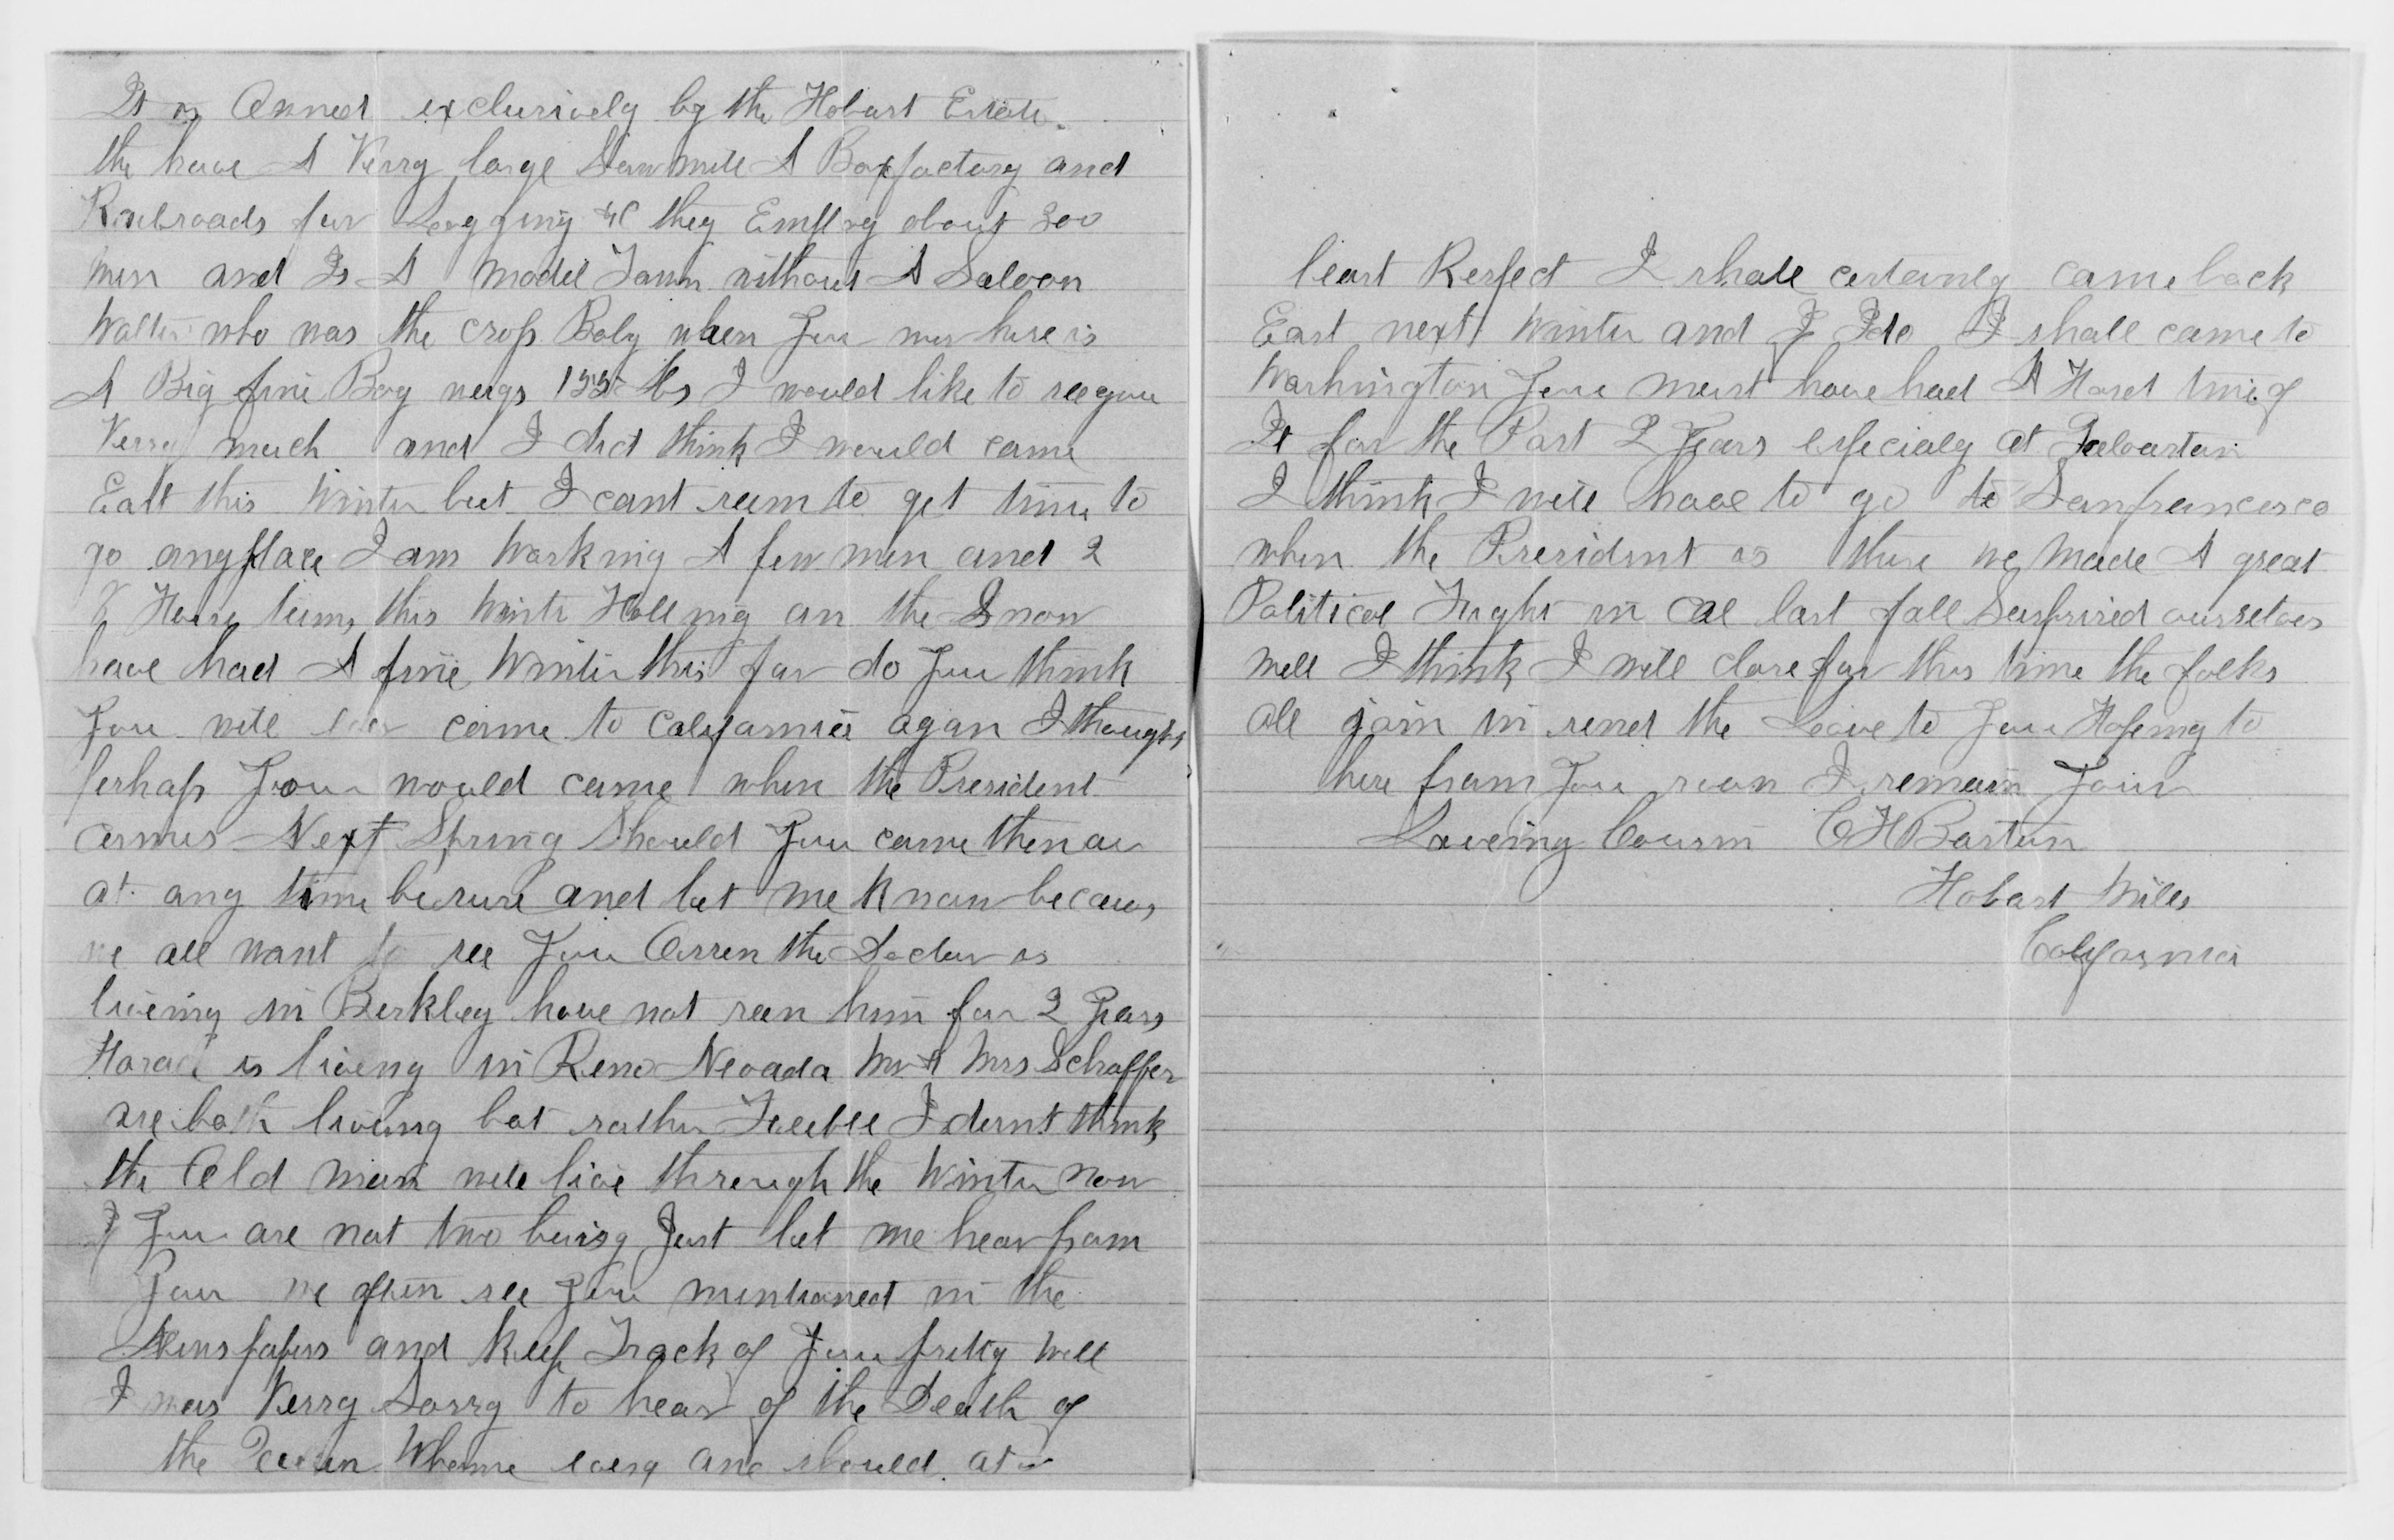 It is Owned exclusively by the Hobart Estate.
the have A Verry large Sawmill A Boxfactory and
Railroads for Logging &C they Employ about 300
Men and Is A Model Town without A Saloon
Walter who was the cross Baby when you was here is
A Big fine Boy weighs 155 lbs I would like to see you
Verry much and I did think I would come
East this Winter but I cant seem to get time to
go anyplace I am Working A few men and 2
Horse teams this Wintr Halling on the Snow
have had A fine Winter this far do you think
you will ever come to California agan I thought
perhaps you would come when the President
comes Next Spring Should you come then or
at any time be sure and let me Know becaus
we all want to see you Orren the Doctor is
liveing in Berkley have not seen him for 2 years
Horace is liveng in Reno Nevada Mr & Mrs Schaffer
are both liveing bot rather Feeble I dornt think
the Old man will live through the Winter now
If you are not two buisy Just let me hear from
you we often see you mentioned in the
Newspapers and Keep Track of you pretty Well
I was Verry Sorry to hear of the Death of
the Queen Whome every one should at
least Respect I shall certainly come back
East next Winter and If I do I shall come to
Washington you must have had A Hard time of
It for the Past 2 years especialy at Galvarton
I think I will have to go to Sanfrancisco
when the President is there we Made A great
Political Fight in Cal last fall Surprised ourselves
well I think I will close for this time the folks
all join in send the Love to you Hopeing to
here from you soon I remain your
Loveing Cousin C H Barton
Hobart Mills
California